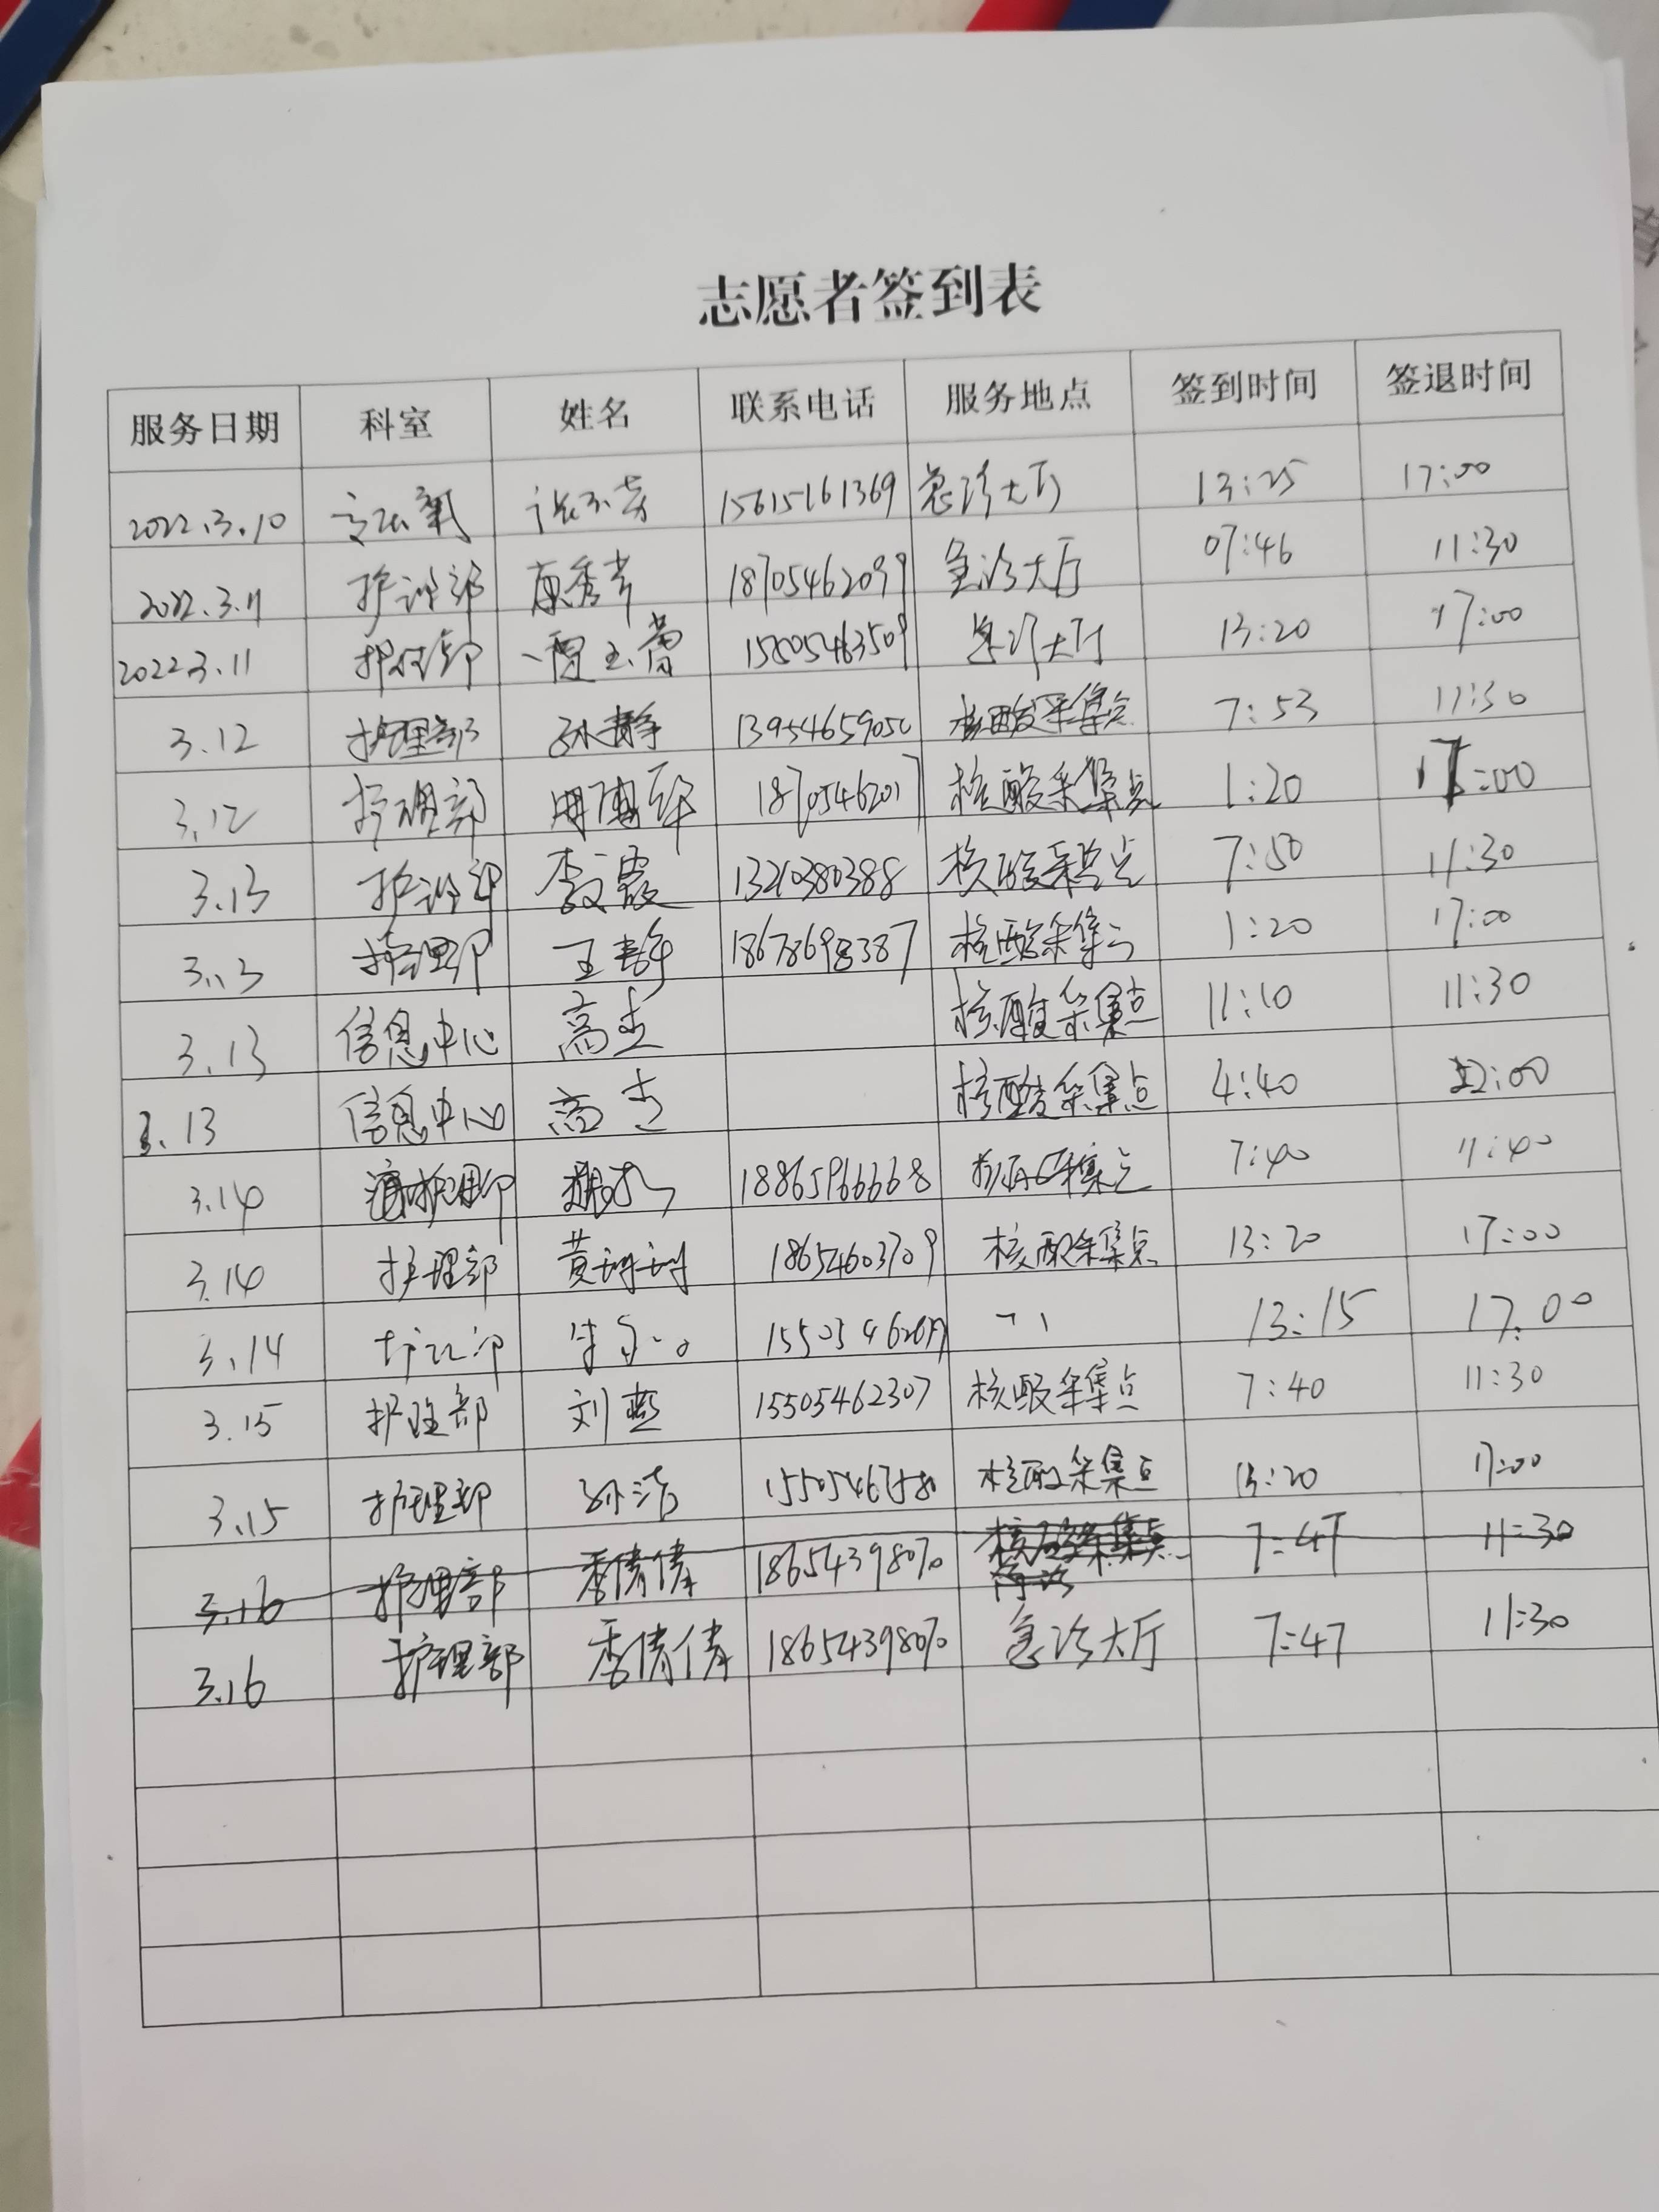 志愿者签到表
服务日期 科室 姓名 联系电话 服务地点 签到时间 签退时间
2022.3.10 15615161369 急诊大厅 13:25 17:00
2022.3.11 护理部 18705462099 急诊大厅 07:46 11:30
2022.3.11 护理部 15805463509 急诊大厅 13:20 17:00
3.12 护理部 孙静 核酸采集点 7:53 11:30
3.12 护理部 核酸采集点 1:20 17:00
3.13 护理部 李霞 核酸采集点 7:50 11:30
3.13 护理部 王静 18678698387 核酸采集点 1:20 17:00
3.13 信息中心 高杰 核酸采集点 11:10 11:30
3.13 信息中心 高杰 核酸采集点 4:40 22:00
3.14 护理部 18865966668 核酸采集点 7:40 11:40
3.14 护理部 黄珊珊 核酸采集点 13:20 17:00
3.14 护理部 13:15 17:00
3.15 护理部 刘燕 15505462307 核酸采集点 7:40 11:30
3.15 护理部 孙洁 核酸采集点 13:20 17:00
3.16 护理部 季倩倩 18654398070 核酸采集点 7:47 11:30
3.16 护理部 季倩倩 18654398070 急诊大厅 7:47 11:30